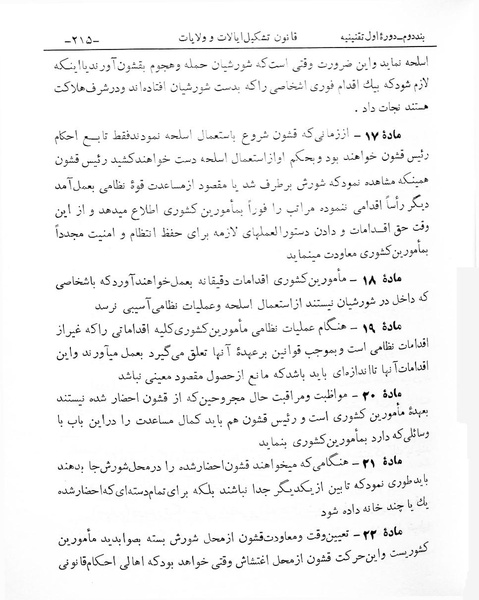 بند دوم ـ دورهٔ اول تقنینیه قانون تشکیل ایالات و ولایات ـ۲۱۵ـ
اسلحه نماید و این ضرورت وقتی است که شورشیان حمله و هجوم بقشون آورند یا اینکه
لازم شود که بیك اقدام فوری اشخاصی را که بدست شورشیان افتاده‌اند و در شرف هلاکت
هستند نجات داد .
مادهٔ ۱۷ ـ از زمانی که قشون شروع باستعمال اسلحه نمودند فقط تابع احکام
رئیس قشون خواهند بود و بحکم او از استعمال اسلحه دست خواهند کشید رئیس قشون
همینکه مشاهده نمود که شورش برطرف شد یا مقصود از مساعدت قوهٔ نظامی بعمل آمد
دیگر رأساً اقدامی ننموده مراتب را فوراً بمأمورین کشوری اطلاع میدهد و از این
وقت حق اقدامات و دادن دستورالعملهای لازمه برای حفظ انتظام و امنیت مجدداً
بمأمورین کشوری معاودت مینماید
مادهٔ ۱۸ ـ مأمورین کشوری اقدامات دقیقانه بعمل خواهند آورد که باشخاصی
که داخل در شورشیان نیستند از استعمال اسلحه و عملیات نظامی آسیبی نرسد
مادهٔ ۱۹ ـ هنگام عملیات نظامی مأمورین کشوری کلیه اقداماتی را که غیر از
اقدامات نظامی است و بموجب قوانین بر عهدهٔ آنها تعلق می‌گیرد بعمل میآورند و این
اقدامات آنها تا اندازه‌ای باید باشد که مانع از حصول مقصود معینی نباشد
مادهٔ ۲۰ ـ مواظبت و مراقبت حال مجروحین که از قشون احضار شده نیستند
بعهدهٔ مأمورین کشوری است و رئیس قشون هم باید کمال مساعدت را در این باب با
وسائلی که دارد بمأمورین کشوری بنماید
مادهٔ ۲۱ ـ هنگامی که میخواهند قشون احضار شده را در محل شورش جا بدهند
باید طوری نمود که تابین از یکدیگر جدا نباشند بلکه برای تمام دسته‌ای که احضار شده
یك یا چند خانه داده شود
مادهٔ ۲۲ ـ تعیین وقت و معاودت قشون از محل شورش بسته بصوابدید مأمورین
کشوریست و این حرکت قشون از محل اغتشاش وقتی خواهد بود که اهالی احکام قانونی